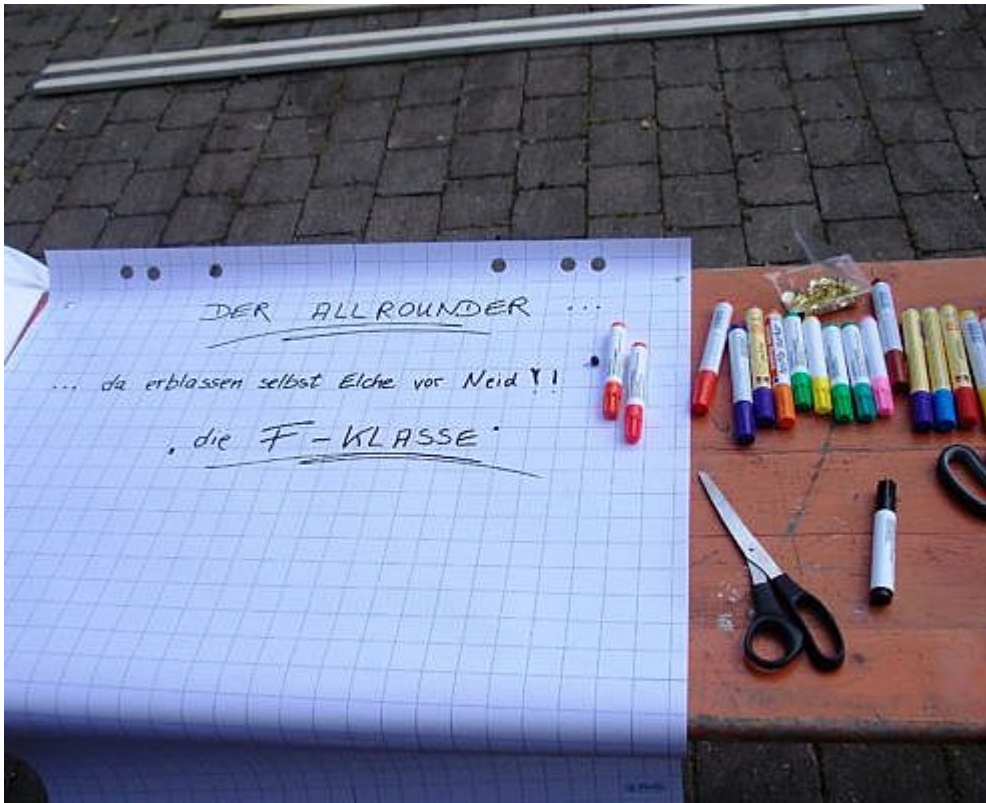 DER ALLROUNDER ...
... da erblassen selbst Elche vor Neid !!
"die F-KLASSE"